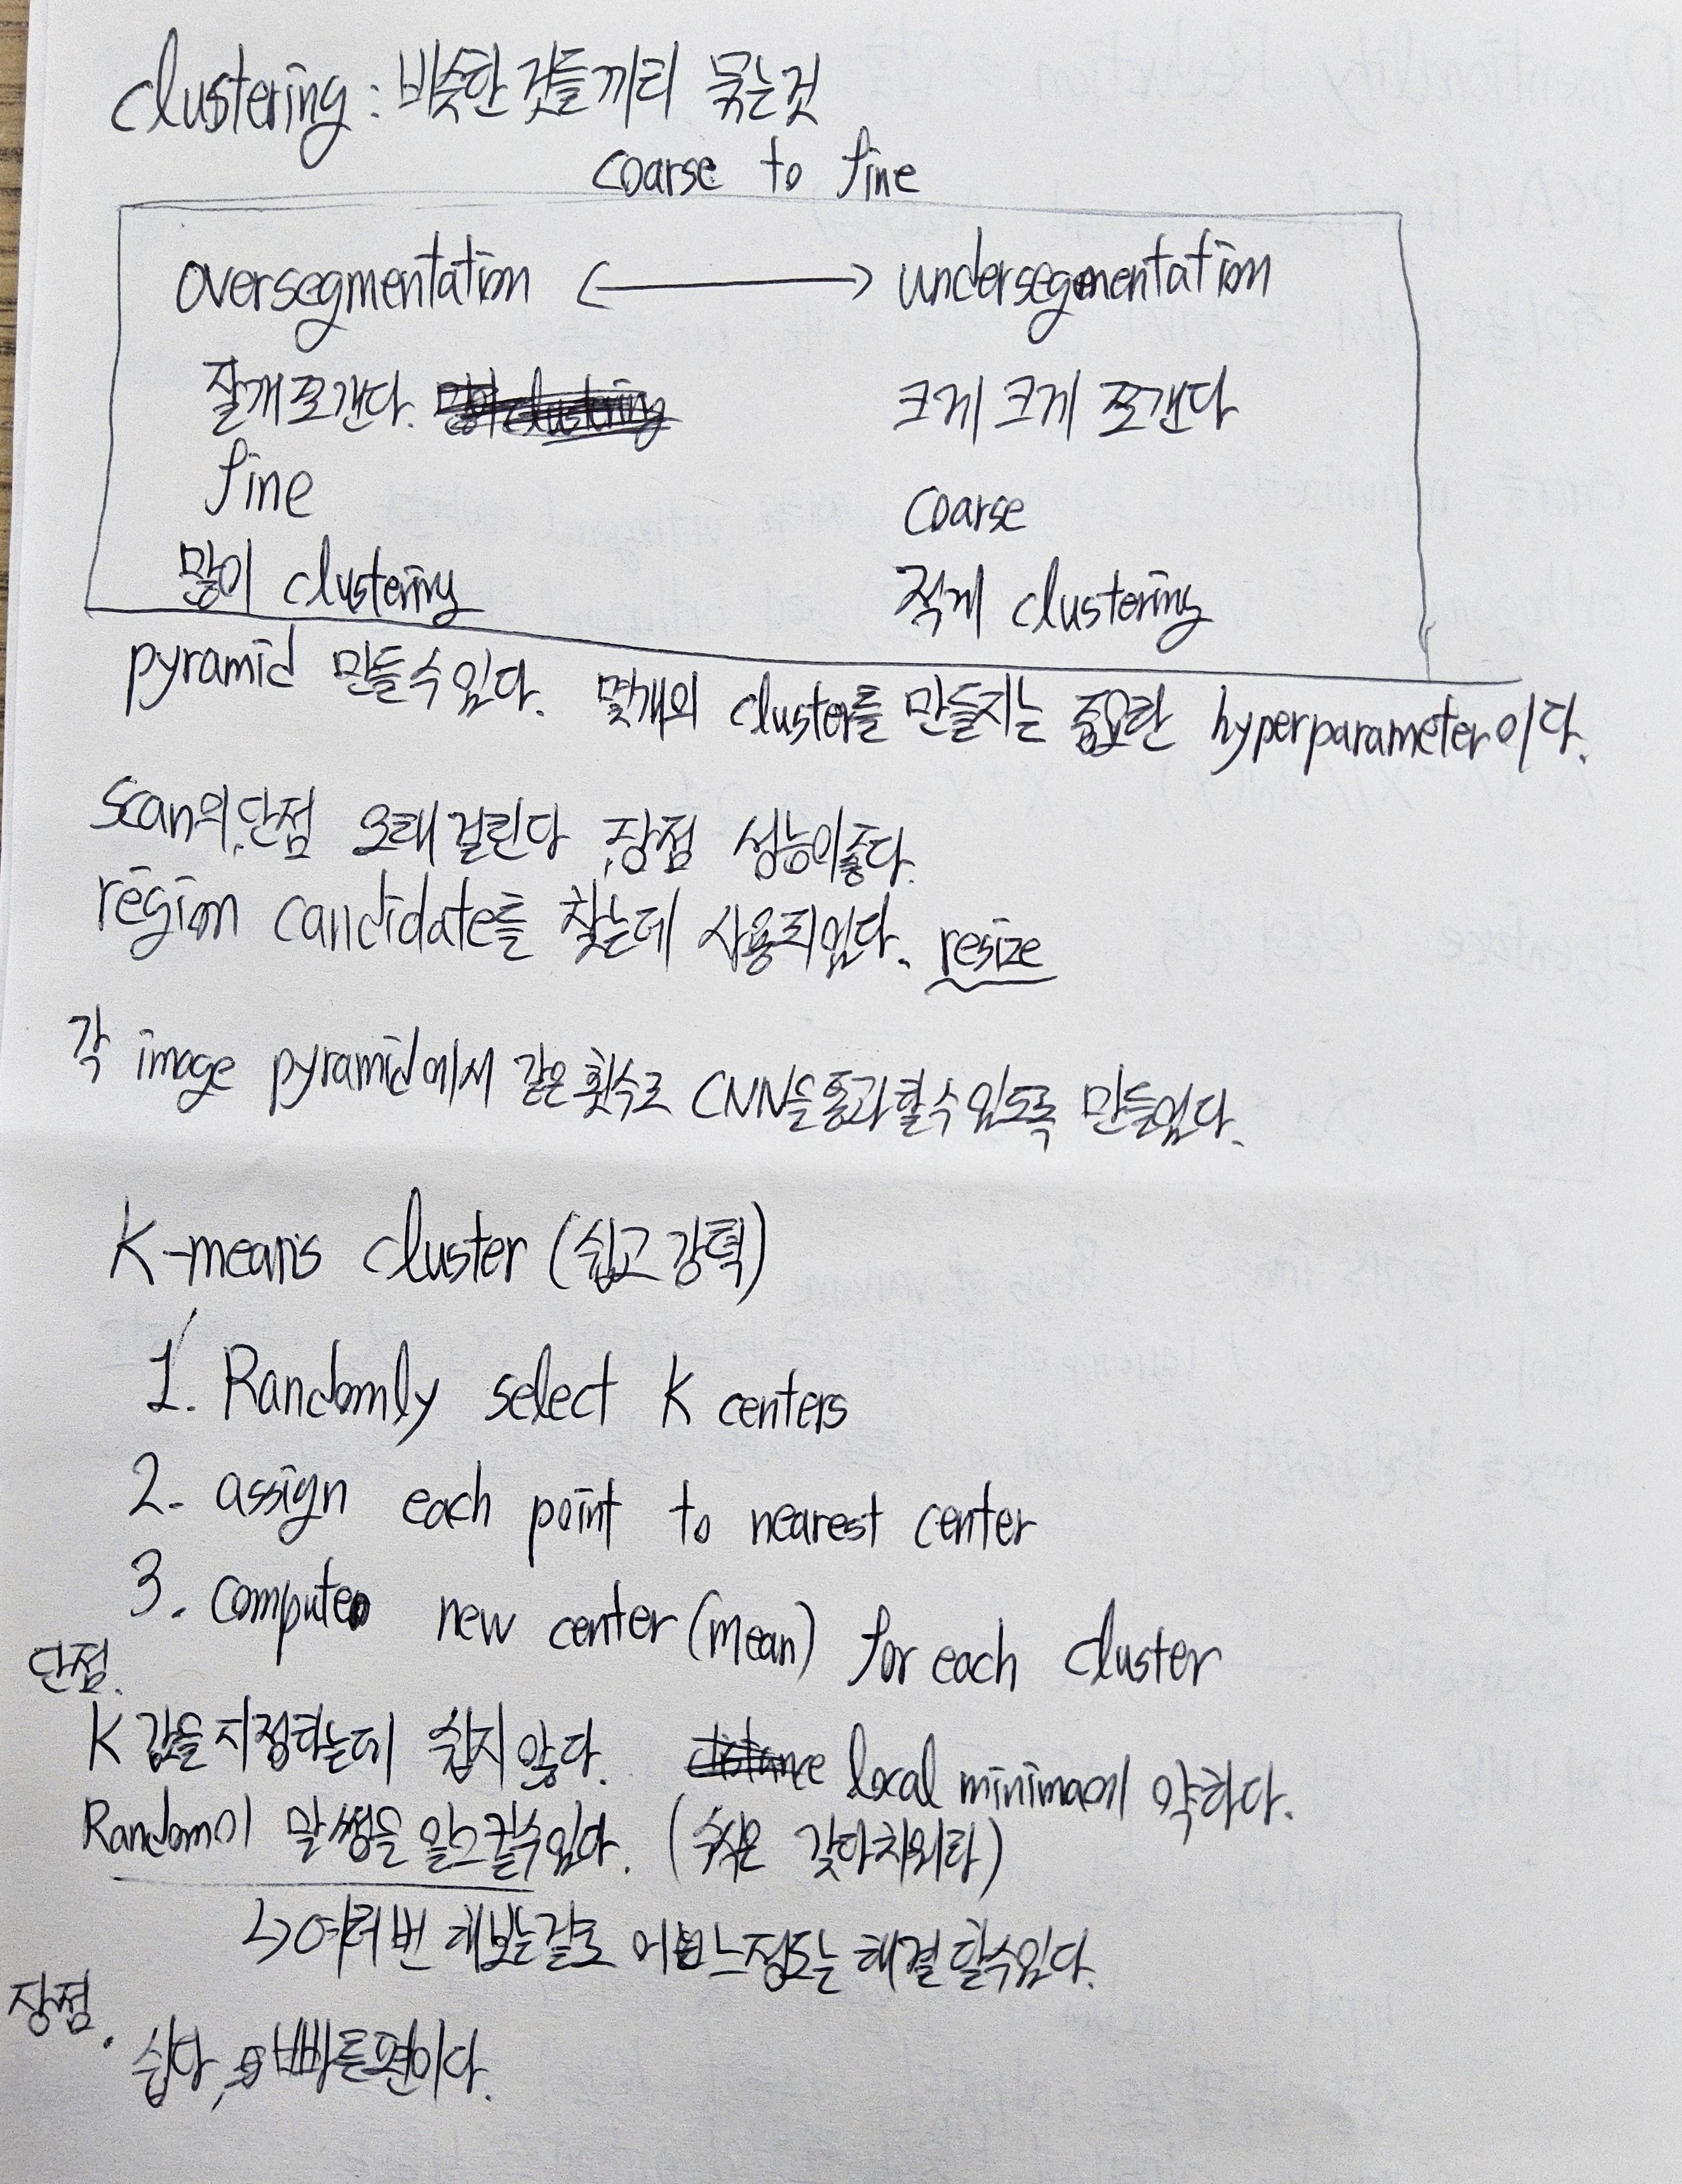 clustering : 비슷한 것들끼리 묶는것
coarse to fine
oversegmentation <-----> undersegmentation
잘게 쪼갠다. 크게 크게 쪼갠다
fine coarse
많이 clustering 적게 clustering
pyramid 만들수있다. 몇개의 cluster를 만들지는 중요한 hyperparameter이다.
scan의 단점 오래 걸린다, 장점 성능이좋다.
region candidate를 찾는데 사용되었다. resize
각 image pyramid에서 같은 횟수로 CNN을 통과할수있도록 만들었다.
K-means cluster (쉽고 강력)
1. Randomly select K centers
2. assign each point to nearest center
3. compute new center (mean) for each cluster
단점.
K 값을 지정하는데 쉽지 않다. local minima에 약하다.
Random이 말썽을 일으킬수있다. (수식은 갖다치워라)
↳ 여러번 해보는걸로 어느정도는 해결할수있다.
장점.
쉽다, 빠른편이다.